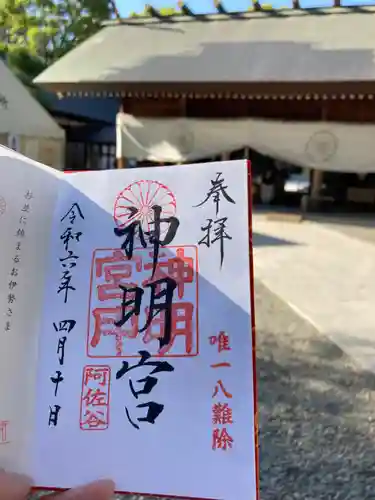 奉拝
唯一八難除
神明宮
神明
宮印
阿佐谷
令和六年
四月十日
お並に締まるお伊勢さま